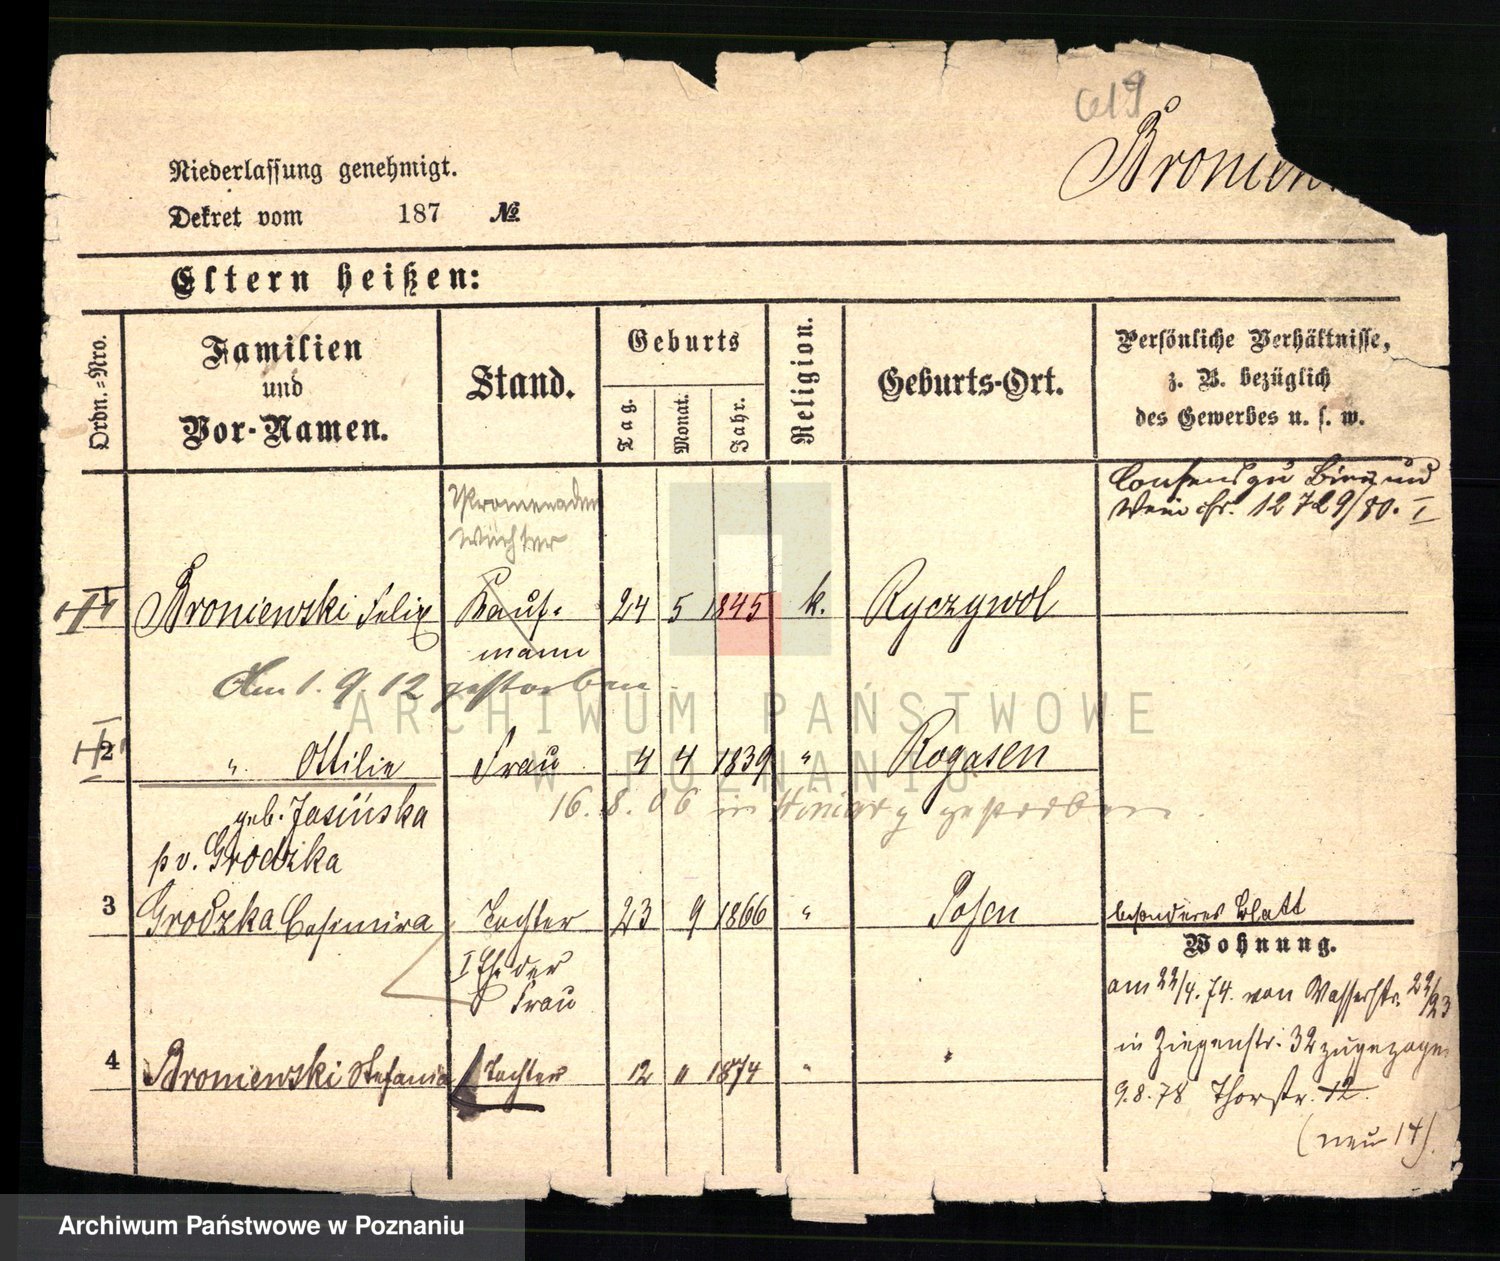 619
Broniew
Niederlassung genehmigt.
Dekret vom 187 №
Eltern heißen:
Ordn.=Nro.
Familien
und
Vor-Namen.
Stand.
Geburts
Tag.
Monat.
Jahr.
Religion.
Geburts-Ort.
Persönliche Verhältnisse,
z. B. bezüglich
des Gewerbes u. s. w.
Consens zu Bier und
Wein 12729/80. I
Promenaden
Wächter
1 Broniewski Felix Kauf- 24 5 1845 k. Ryczywol
mann
Am 1. 9. 12 gestorben
2 " Ottilie Frau 4 4 1839 " Rogasen
geb. Jasińska
16. 8. 06 in gestorben
pv. Grodzka
3 Grodzka Casimira Tochter 23 9 1866 " Posen besonderes Blatt
I der
Frau
Wohnung.
am 22/4. 74. von Wasserstr. 22/23
in Ziegenstr. 32 zugezogen
4 Broniewski Stefania Tochter 12 11 1874 " "
9.8.78 Thorstr. 12.
(neu 14).
ARCHIWUM PAŃSTWOWE
W POZNANIU
Archiwum Państwowe w Poznaniu